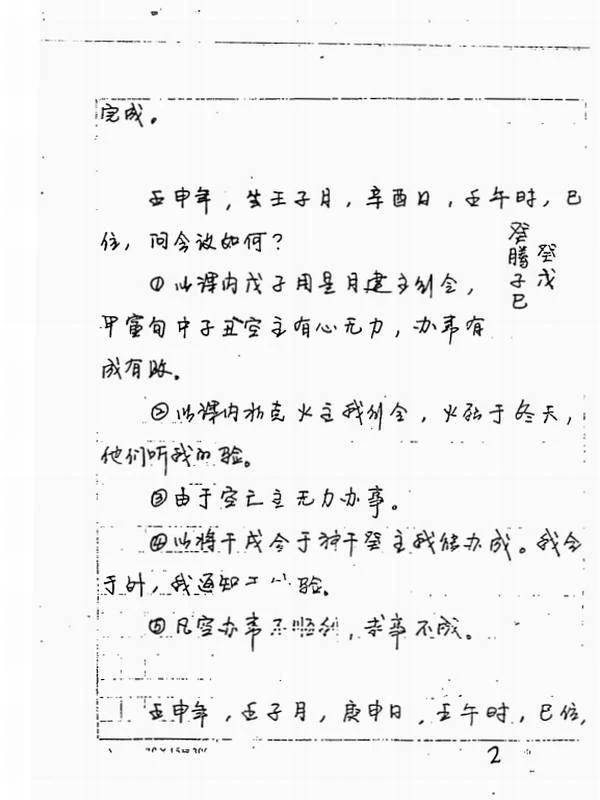 完成。
壬申年，生壬子月，辛酉日，壬午时，巳
位，问会议如何？
癸 癸
腾 戊
子
巳
①以课内戊子用是月建主创会，
甲寅旬中子丑空主有心无力，办事有
成有败。
②以课内水克火主我创会，火弱于冬天，
他们听我的验。
③由于空亡主无力办事。
④以将干戊合于神干癸主我能办成。我会
于外，我通知 验。
⑤凡空办事不顺利，求事不成。
壬申年，壬子月，庚申日，壬午时，巳位，
2